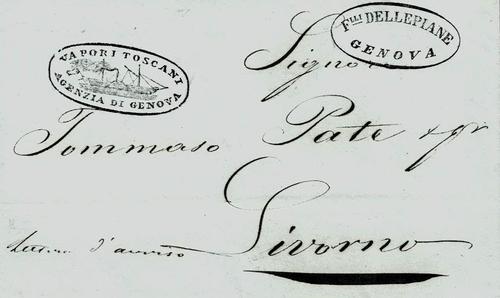 VAPORI TOSCANI
AGENZIA DI GENOVA
F.lli DELLEPIANE
GENOVA
Signor
Tommaso Pate
Livorno
Lettera d'avviso